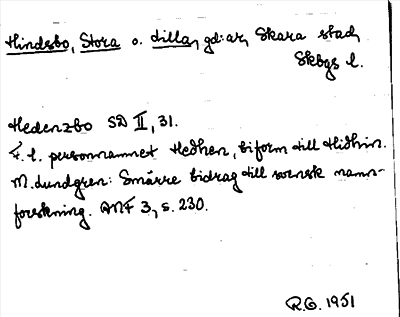 Hindsbo, Stora o. Lilla, gd:ar, Skara stad,
Skbgs l.
Hedenzbo SD II, 31.
F. l. personnamnet Hedhen, biform till Hidhin.
M. Lundgren: Smärre bidrag till svensk namn-
forskning. ANF 3, s. 230.
R.G. 1951